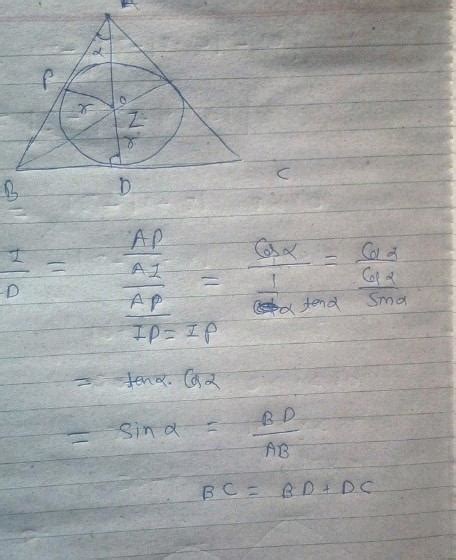 A
α
P
r
O
I
r
B
D
C
I/D = (AP/AI)/(AP/ID = IP) = Cosα/(1/α tanα) = Cosα/(Cosα/Sinα)
= tanα. Cosα
= Sinα = BD/AB
BC = BD + DC